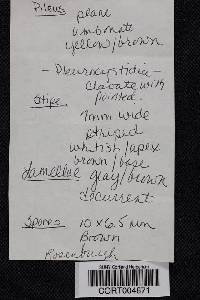 Pileus plane
umbonate
yellow/brown
- Pleurocystidia -
Clavate with
pointed.
Stipe
7mm wide
striped
whitish/apex
brown/base
Lamellae gray/brown
decurrent
Spores 10 x 6.5 µm
Brown
Rosenbaugh
SUNY Cortland Herbarium
CORT004671